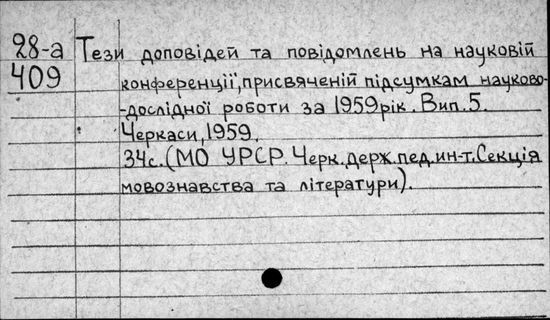 28-а Тези доповідей та повідомлень на науковій
409 конференції, присвяченій підсумкам науково-
-дослідної роботи за 1959 рік. Вип. 5.
Черкаси, 1959.
34 с. (МО УРСР. Черк. держ. пед. ин-т. Секція
мовознавства та літератури).